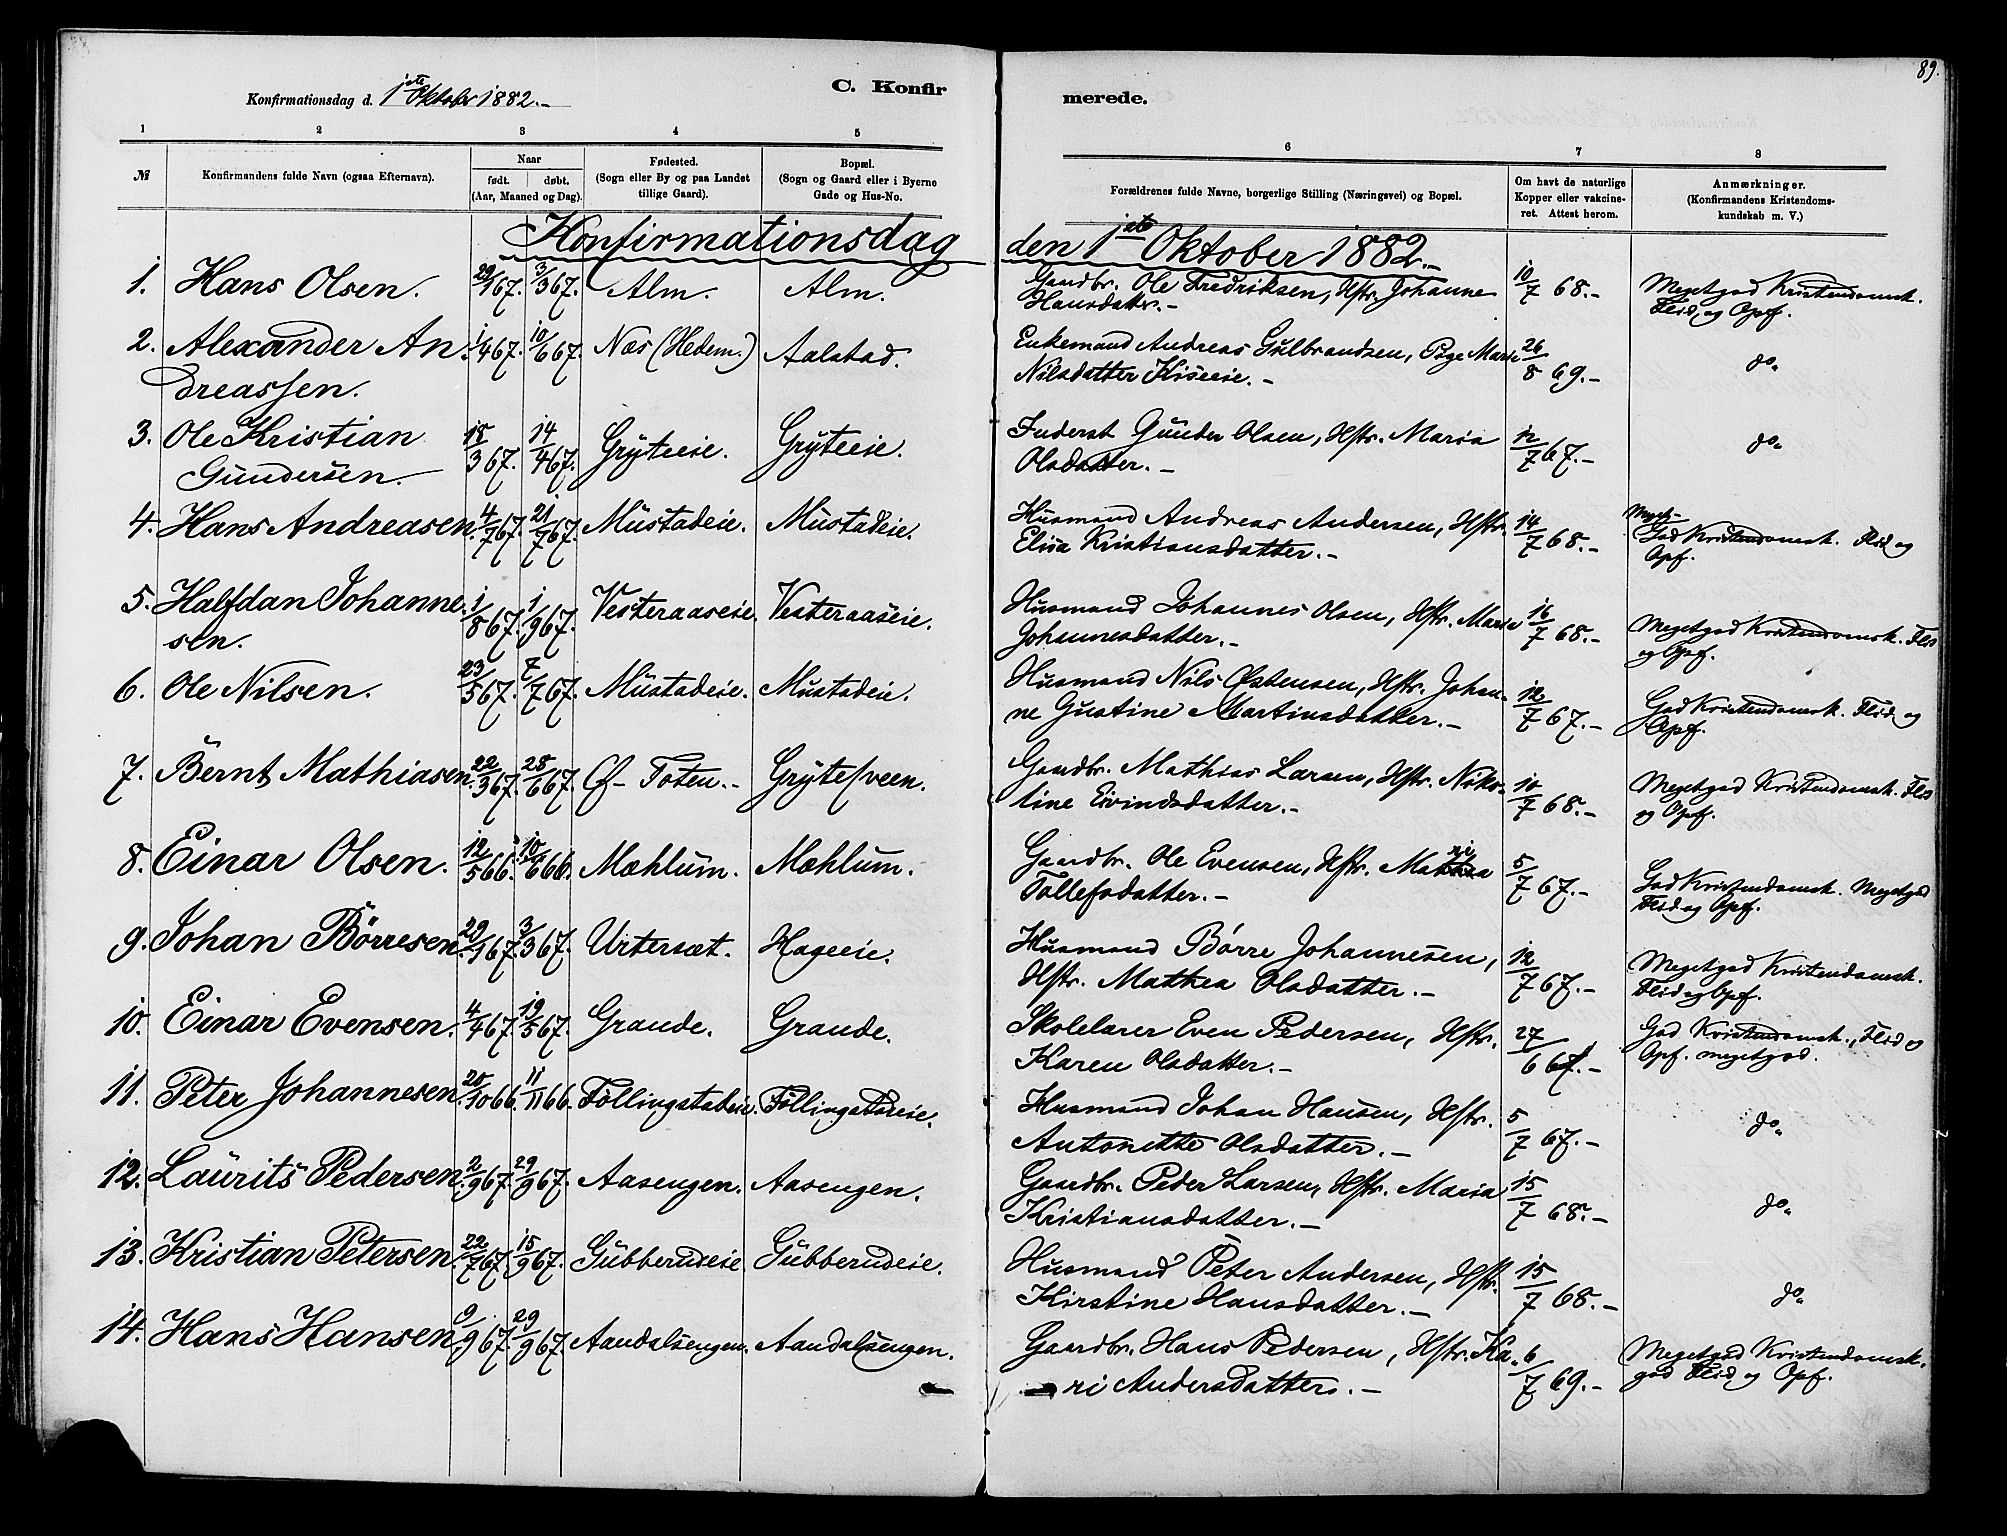 89.
Konfirmationsdag d. 1ste Oktober 1882.-
C. Konfir
merede.
1 2 3 4 5 6 7 8
№ Konfirmandens fulde Navn (ogsaa Efternavn). Naar født. døbt. (Aar, Maaned og Dag). Fødested. (Sogn eller By og paa Landet tillige Gaard). Bopæl. (Sogn og Gaard eller i Byerne Gade og Hus-No. Forældrenes fulde Navne, borgerlige Stilling (Næringsvei) og Bopæl. Om havt de naturlige Kopper eller vakcineret. Attest herom. Anmærkninger. (Konfirmandens Kristendomskundskab m. V.)
Konfirmationsdag den 1ste Oktober 1882.-
1. Hans Olsen. 29/1 67. 3/3 67. Alm. Alm. Gaardbr. Ole Fredriksen, Hstr. Johanne 10/7 68.- Megetgod Kristendomsk.
Hansdatter.- Flid og Opf.
2. Alexander An- 1/4 67. 10/6 67. Næs (Hedem.) Aalstad. Enkemand Andreas Gulbrandsen, Pige Marie 26/8 69.- do.
dreassen. Nilsdatter Kiseeie.-
3. Ole Kristian 18/3 67. 14/4 67. Gryteeie. Gryteeie. Inderst Gunder Olsen, Hstr. Maria 12/7 67.- do
Gundersen. Olsdatter.-
4. Hans Andreasen. 4/7 67. 21/7 67. Mustadeie. Mustadeie. Husmand Andreas Andersen, Hstr. 14/7 68.- Meget-
Elisa Kristiansdatter.- God Kristendomsk. Flid og
Opf.
5. Halfdan Johanne 1/8 67. 1/9 67. Vesteraaseie. Vesteraaseie. Husmand Johannes Olsen, Hstr. Maria 16/7 68.- Megetgod Kristendomsk. Flid
sen. Johannesdatter.- og Opf.
6. Ole Nilsen. 23/5 67. 7/7 67. Mustadeie. Mustadeie. Husmand Nils Østensen, Hstr. Johan- 12/7 67.- God Kristendomsk. Flid og
ne Gustine Martinusdatter.- Opf.
7. Bernt Mathiasen. 22/3 67. 28/6 67. Ø- Toten.- Gryte/veen. Gaardbr. Mathias Larsen, Hstr. Niko- 10/7 68.- Megetgod Kristendomsk. Flid
line Eivindsdatter.- og Opf.
8. Einar Olsen. 12/5 66. 10/6 66. Mæhlum. Mæhlum. Gaardbr. Ole Evensen, Hstr. 5/7 67.- God Kristendomsk. Megetgod
Tollefsdatter.- Flid og Opf.
9. Johan Börresen. 29/1 67. 3/3 67. Urtersæt. Hageeie. Husmand Børre Johannesen, 12/7 67.- Megetgod Kristendomsk.
Hstr. Mathea Olsdatter.- Flid og Opf.
10. Einar Evensen. 4/4 67. 19/5 67. Grande. Grande. Skolelærer Even Pedersen, Hstr. 27/6 67.- God Kristendomsk., Flid og
Karen Olsdatter.- Opf. megetgod.
11. Peter Johannesen. 20/10 66. 11/11 66. Föllingstadeie. Föllingstadeie. Husmand Johan Hansen, Hstr. 5/7 67.- do.
Antonette Olsdatter.-
12. Laurits Pedersen. 2/9 67. 29/9 67. Aasengen. Aasengen. Gaardbr. Peder Larsen, Hstr. Maria 15/7 68.- do.
Kristiansdatter.-
13. Kristian Petersen. 22/7 67. 15/9 67. Gubberudeie Gubberudeie. Husmand Peter Andersen, Hstr. 15/7 68.- do.
Kirstine Hansdatter.-
14. Hans Hansen. 9/9 67. 29/9 67. Aandalsengen. Aandalsengen. Gaardbr. Hans Pedersen, Hstr. Ka- 6/7 69.- Megetgod Kristendomsk.
ri Andersdatter.- god Flid og Opf.